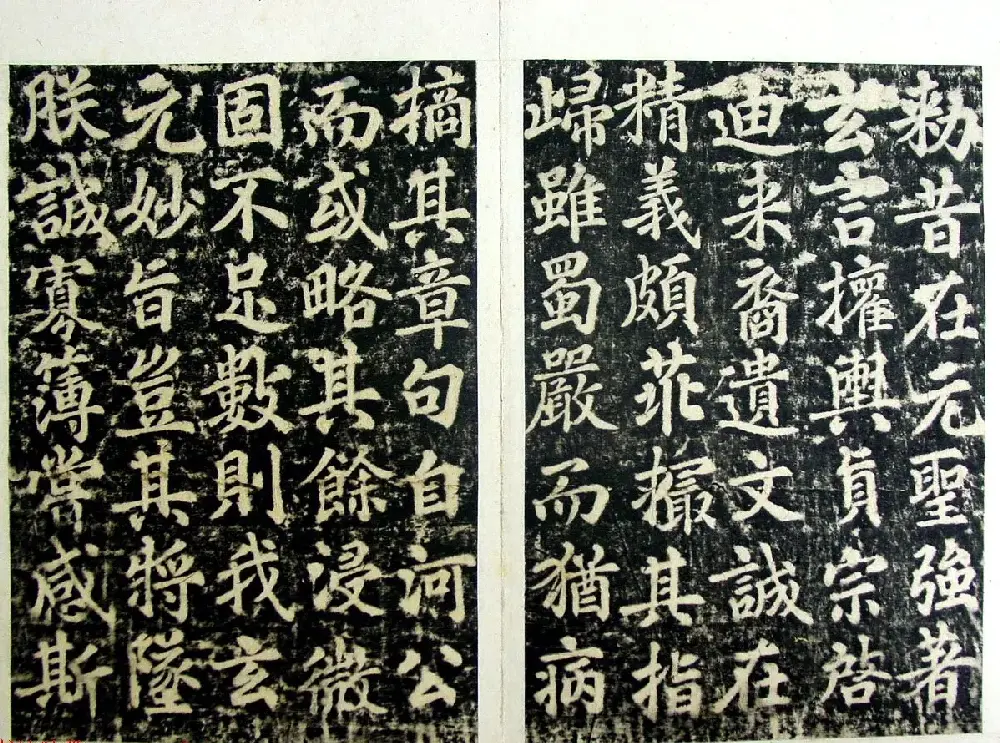 勑昔在元聖強著
玄言攉輿真宗啓
迪来裔遺文誠在
精義頗乖撮其指
歸雖蜀嚴而猶病
摘其章句自河公
而或略其餘浸微
固不足數則我玄
元妙旨豈其將墜
朕誠寡薄嘗感斯